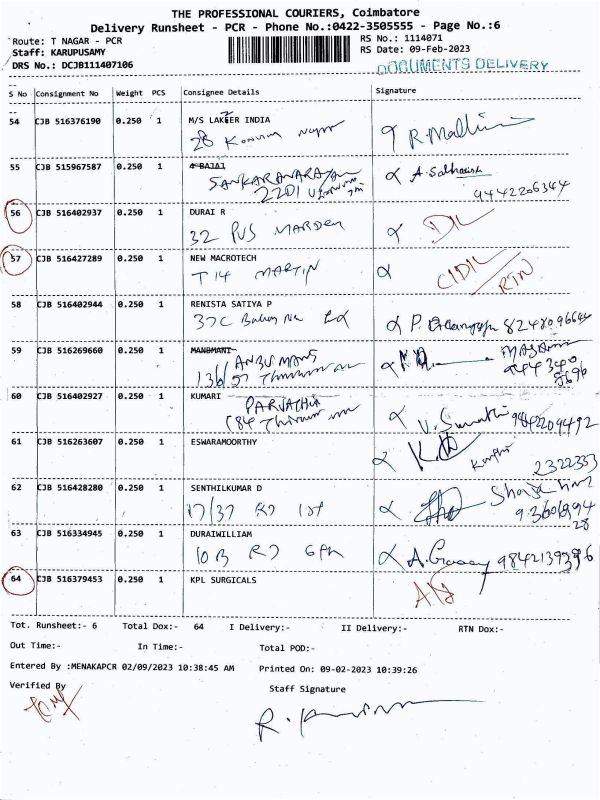 THE PROFESSIONAL COURIERS, Coimbatore
Delivery Runsheet - PCR - Phone No.:0422-3505555 - Page No.:6
Route: T NAGAR - PCR
RS No.: 1114071
Staff: KARUPUSAMY
RS Date: 09-Feb-2023
DRS No.: DCJB111407106
DOCUMENTS DELIVERY
S No Consignment No Weight PCS Consignee Details Signature
54 CJB 516376190 0.250 1 M/S LAKZER INDIA
28
55 CJB 515967587 0.250 1 A BAJAJ
SANKARANARAYAN A. Sathish
2201 9442206344
56 CJB 516402937 0.250 1 DURAI R
32 PUS MARDEN DIL
57 CJB 516427289 0.250 1 NEW MACROTECH
T 14 MARTIN C/DIL
RTN
58 CJB 516402944 0.250 1 RENISTA SATIYA P
37C Rd P.
59 CJB 516269660 0.250 1 MANOMANI
ANBU MANI
136/57
60 CJB 516402927 0.250 1 KUMARI
PARVATHIA
184 V. Sumathi 9842209492
61 CJB 516263607 0.250 1 ESWARAMOORTHY
2322353
62 CJB 516428280 0.250 1 SENTHILKUMAR D
17/37 RJ 1st
63 CJB 516334945 0.250 1 DURAIWILLIAM
10B RJ 6th 9842139396
64 CJB 516379453 0.250 1 KPL SURGICALS
Tot. Runsheet:- 6 Total Dox:- 64 I Delivery:- II Delivery:- RTN Dox:-
Out Time:- In Time:- Total POD:-
Entered By :MENAKAPCR 02/09/2023 10:38:45 AM Printed On: 09-02-2023 10:39:26
Verified By Staff Signature